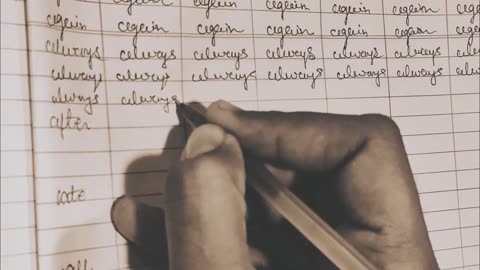 again again again again again
again again again again again again
always always always always always always
always always always always always always
always always
after